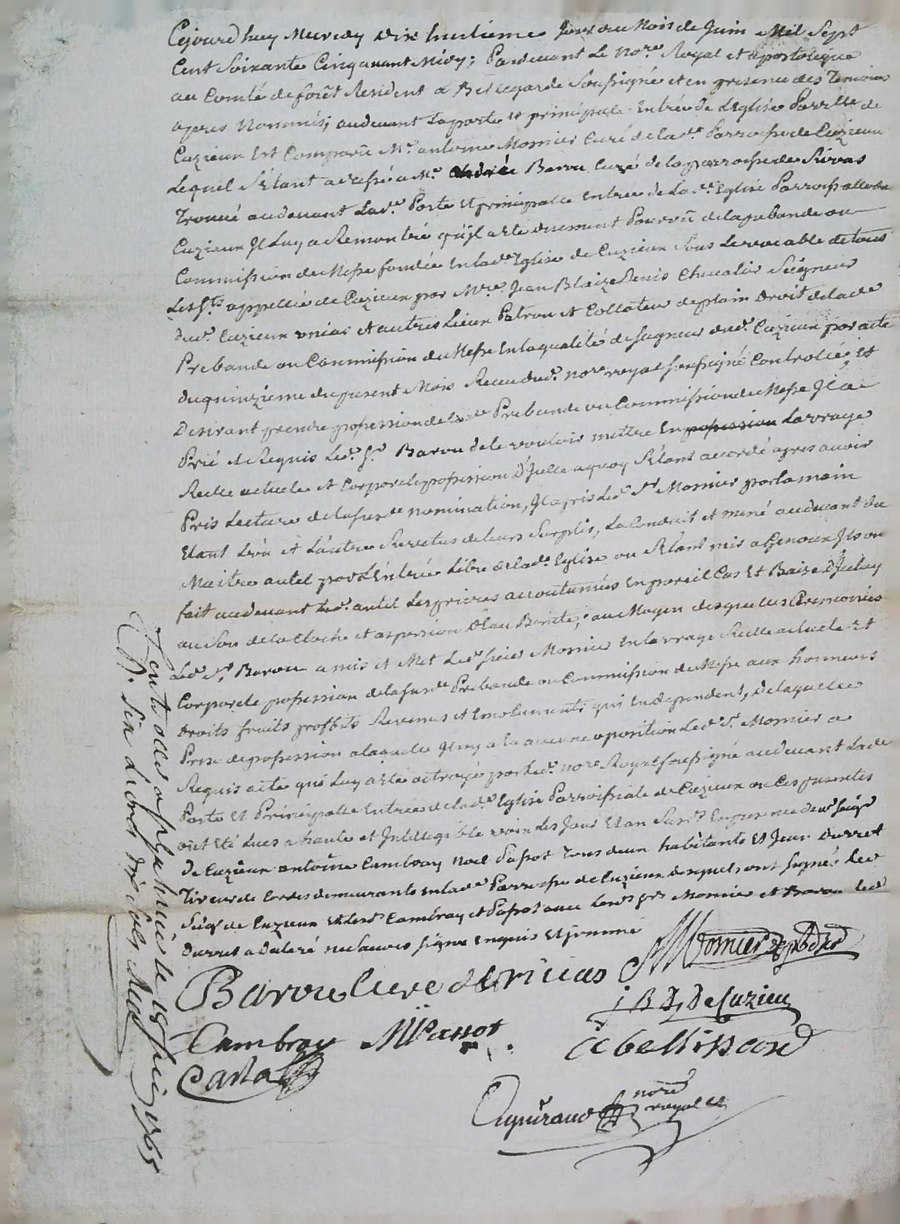 Cejourdhuy Mercredy dix huitieme Jour du Mois de Juin Mil Sept
Cent Soixante Cinq avant Midy; Pardevant Le nore. Royal et apostolique
au Comté de forêt Resident a Bellegarde Soussigné et en presence des Temoins
apres Nommés; audevant La porte et principale Entrée de L'Eglise Parrlle de
Cuzieux Est Comparu Mre. antoine Monier Curé de lade. Parroisse de Cuzieux
Lequel S'Etant adressé a Mre. andré Barou Curé de la parroisse de Rivas
Trouvé audevant Lade. Porte Et principalle Entrée de La de. Eglise Parroissialle de
Cuzieux Il Luy a Remontré qu'il a Eté duement Pourvû de la prebande ou
Commission de Messe fondée En lade. Eglise de Cuzieux Sous Le vocable de tous
Les Sts. appellée de Cuzieux par Mre. Jean Blaize Denis Chevalier Seigneur
dud. Cuzieux Unias et autres Lieux Patron et Collateur de plain Droit de lade.
Prebande ou Commission de Messe En la qualité de Seigneur dud. Cuzieux par acte
du quinzieme du present Mois Receu dud. nore. royal soussigné Controllée; Et
Desirant prendre possession de la de. Prebande ou Commission de Messe Il a
Prié Et Requis Led. Sr. Barou de le vouloir mettre En possession La vraye
Reelle actuelle et Corporelle possession D'Icelle a quoy S'Etant accordé apres avoir
Pris Lecture de la susde. nomination, Il a pris Led. Sr. Monier par la main
Etant L'un et L'autre Revetus de leurs Surplis, La Conduit et mené audevant du
Maitre autel par L'Entrée Libre de lade. Eglise ou S'Etant mis a Genoux Ils ont
fait audevant Led. autel Les prieres accoutumées En pareil Cas Et Baizé D'Iceluy
au Son de la Cloche et aspersion D'Eau Benite; au Moyen desquelles Ceremonies
Led. Sr. Barou a mis et Met Led. Sieur Monier En la vraye Reelle actuelle Et
Corporelle possession de la susde. Prebande ou Commission de Messe aux honneurs
Droits fruits proffits Revenus et Emoluments qui En dependent, De laquelle
Prise de possession a laquelle Il n'y a Eu aucune oposition Led. Sr. Monier a
Requis acte qui Luy a Eté octroyé par led. nore. Royal soussigné audevant La de.
Porte Et Principalle Entrée de lade. Eglise Parroissiale de Cuzieux ou Ces presentes
ont Eté Lues a haute et Intelligible voix Les Jour Et an En presence de Seigr.
De Cuzieux antoine Cambray Noel Passot Tous deux habitants Et Jean Durret
Tireur de Cordes demeurants En lade. Parroisse de Cuzieux desquels ont Signés led.
Seigr. de Cuzieux Et lesd. Cambray et Passot avec lesd. Srs. Monier et Barou led.
Durret a Declaré ne Scavoir Signer Enquis Et Sommé
Barou Curé de rivas Monier
j B D De Cuzieu
Cambray M Passot
nore royal
le 18 juin 1765